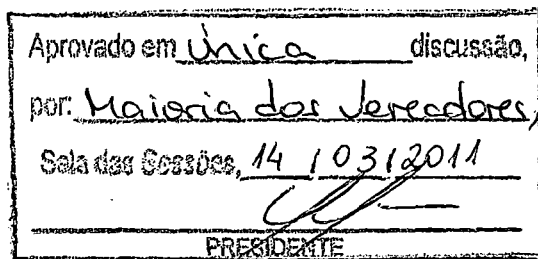 Aprovado em única discussão,
por: Maioria dos Vereadores,
Sala das Sessões, 14 / 03 / 2011
PRESIDENTE